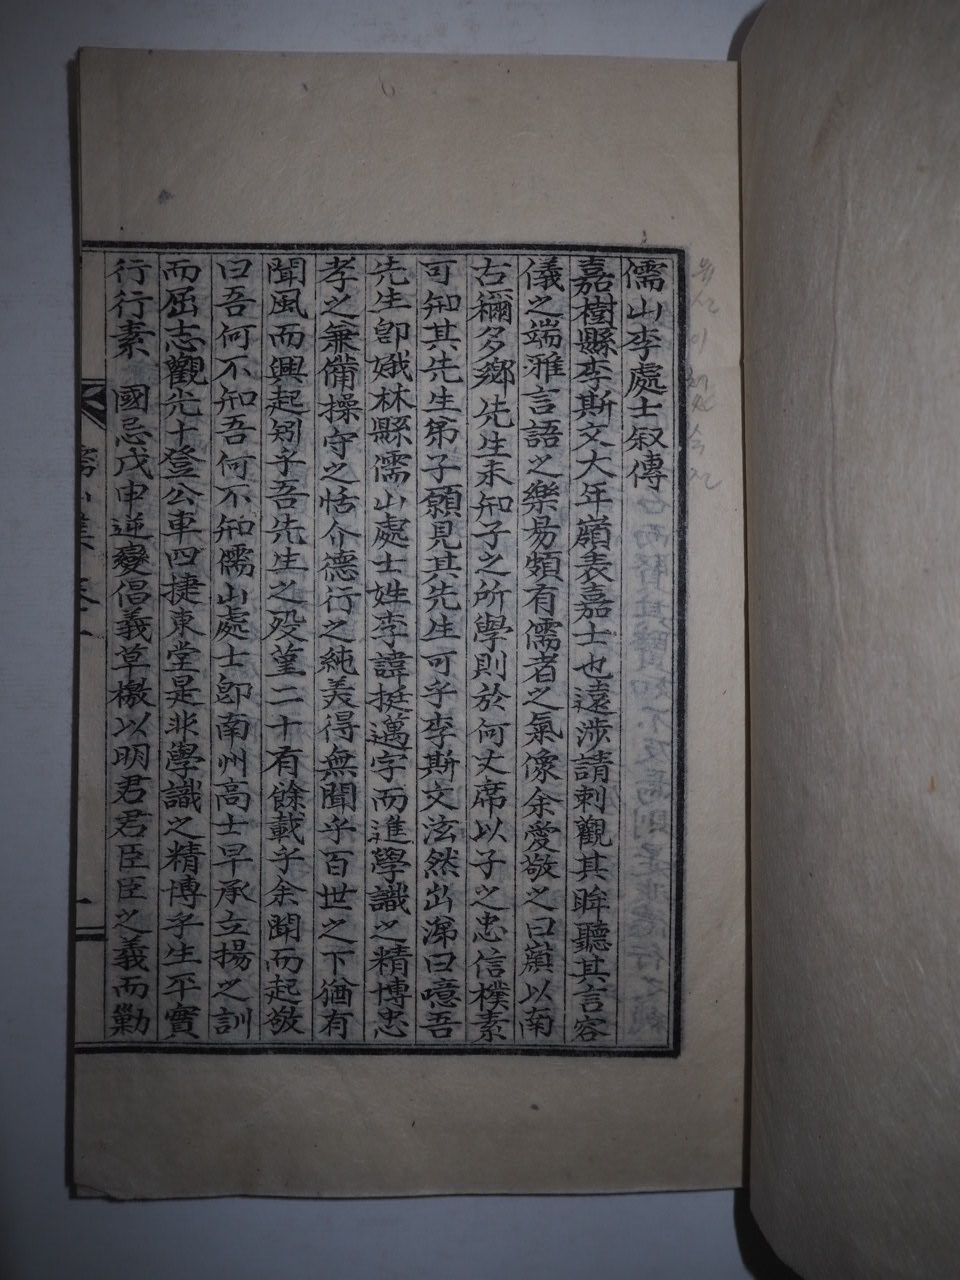 儒山李處士叙傳
嘉樹縣李斯文大年嶺表嘉士也遠涉請刺觀其眸聽其言容
儀之端雅言語之樂易頗有儒者之氣像余愛敬之曰嶺以南
古稱多鄒先生未知子之所學則於何丈席以子之忠信樸素
可知其先生弟子願見其先生可乎李斯文泫然出涕曰噫吾
先生卽娥林縣儒山處士姓李諱挺邁字而進學識之精博忠
孝之兼備操守之恬介德行之純美得無聞乎百世之下猶有
聞風而興起矧乎吾先生之歿堇二十有餘載乎余聞而起敬
曰吾何不知吾何不知儒山處士卽南州高士早承立揚之訓
而屈志觀光十登公車四捷東堂是非學識之精博乎生平實
行行素 國忌戊申逆變倡義草檄以明君君臣臣之義而勦